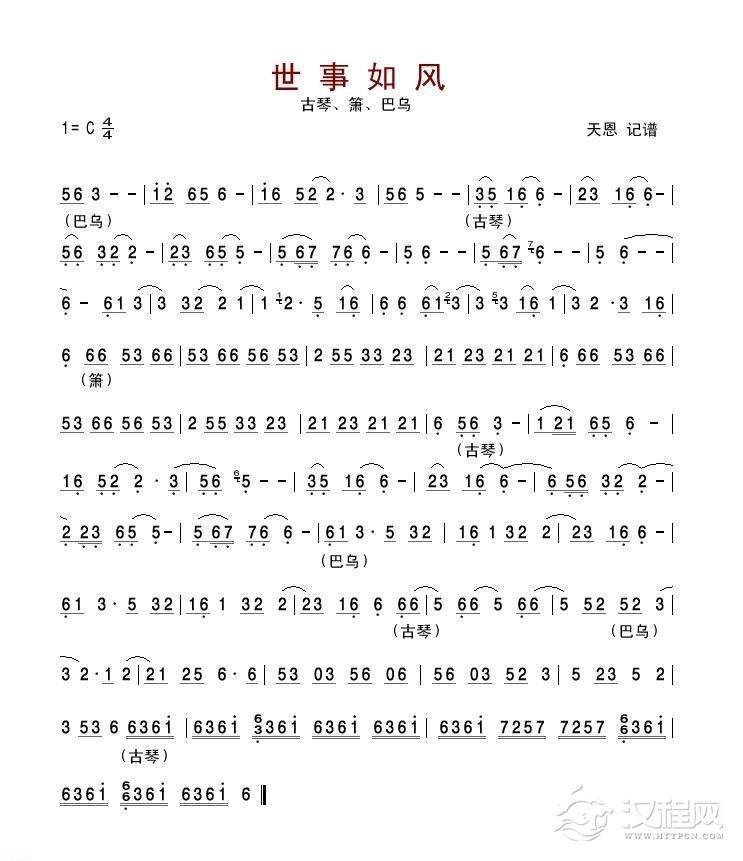 世事如风
古琴、箫、巴乌
1= C 4/4 天恩 记谱
56 3 - - | i2 65 6 - | i6 52 2 · 3 | 56 5 - - | 35 16 6 - | 23 16 6 - |
(巴乌) (古琴)
56 32 2 - | 23 65 5 - | 5 67 76 6 - | 5 6 - - | 5 67 7 6 - - | 5 6 - -
6 - 61 3 | 3 32 2 1 | 1 1 2 · 5 16 | 6 6 61 2 3 | 3 5 3 16 1 | 3 2 · 3 16 |
6 66 53 66 | 53 66 56 53 | 2 55 33 23 | 21 23 21 21 | 6 66 53 66 |
(箫)
53 66 56 53 | 2 55 33 23 | 21 23 21 21 | 6 56 3 - | 1 21 65 6 - |
(古琴)
16 52 2 · 3 | 56 6 5 - - | 35 16 6 - | 23 16 6 - | 6 56 32 2 - |
2 23 65 5 - | 5 67 76 6 - | 61 3 · 5 32 | 16 1 32 2 | 23 16 6 - |
(巴乌)
61 3 · 5 32 | 16 1 32 2 | 23 16 6 66 | 5 66 5 66 | 5 52 52 3 |
(古琴) (巴乌)
3 2 · 1 2 | 21 25 6 · 6 | 53 03 56 06 | 56 03 52 3 | 23 5 2 |
3 53 6 6361 | 6361 6361 6361 6361 | 6361 6361 7257 | 7257 7257 6361 |
(古琴)
6361 6361 6361 6 ‖
汉程网
WWW.HTTPCN.COM